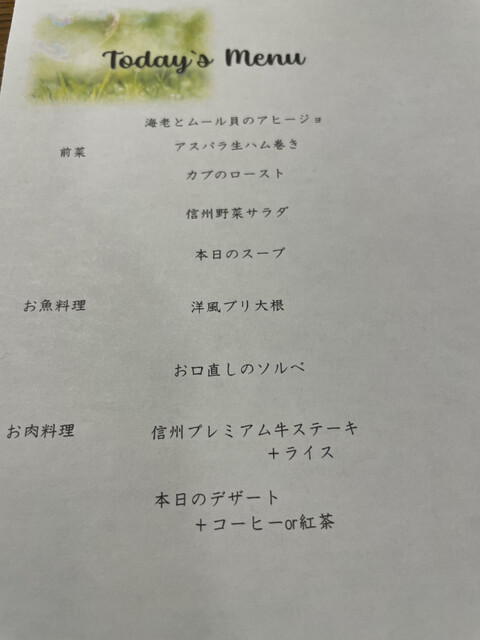 Today`s Menu
海老とムール貝のアヒージョ
前菜 アスパラ生ハム巻き
カブのロースト
信州野菜サラダ
本日のスープ
お魚料理 洋風ブリ大根
お口直しのソルベ
お肉料理 信州プレミアム牛ステーキ
+ライス
本日のデザート
+コーヒーor紅茶